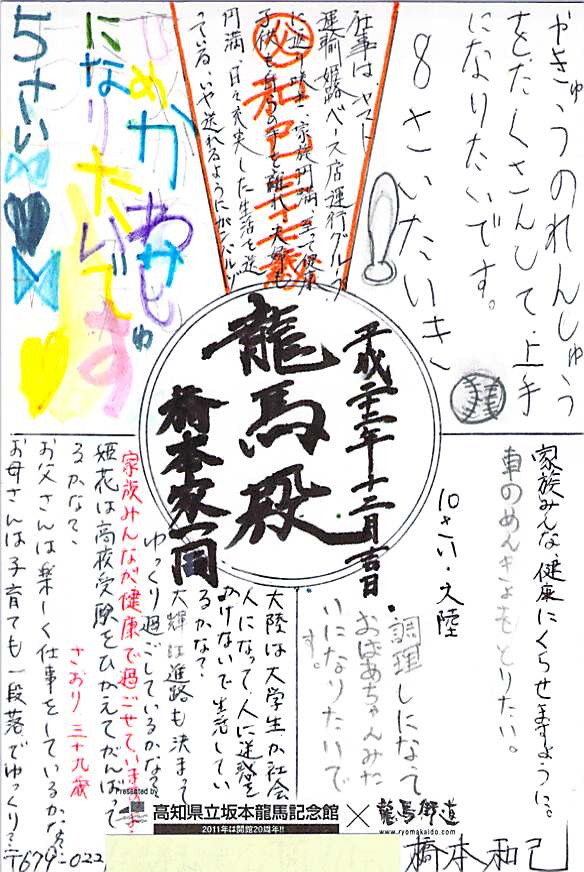 やきゅうのれんしゅう
をたくさんして、上手
になりたいです。
8さいたいき
仕事はヤマト
運輸姫路ベース店運行グループ
に返り咲き、家族円満、全て健康
子供も自分の手を離れ、夫婦も
円満、日々充実した生活を送
っている、いや送れるようにがんバル
㊙和己三十七歳
めがね
になりたいです
5さい
平成二十二年十二月吉日
龍馬殿
橋本家一同
家族みんな、健康にくらせますように。
車のめんきょもとりたい。
10さい・大陸
調理しになって
おばあちゃんみた
いになりたいで
す。
大陸は大学生か社会
人になって、人に迷惑を
かけないで生活してい
るかな?
大輝は進路も決まって
ゆっくり過ごしているかな?
家族みんなが健康で過ごせていますか
姫花は高校受験をひかえてがんばって
るかな?
さおり 三十九歳
お父さんは楽しく仕事をしているかな?
お母さんは子育ても一段落でゆっくり?
Presented by
高知県立坂本龍馬記念館
2011年は開館20周年!!
×
龍馬街道
www.ryomakaido.com
橋本和己
〒679-022